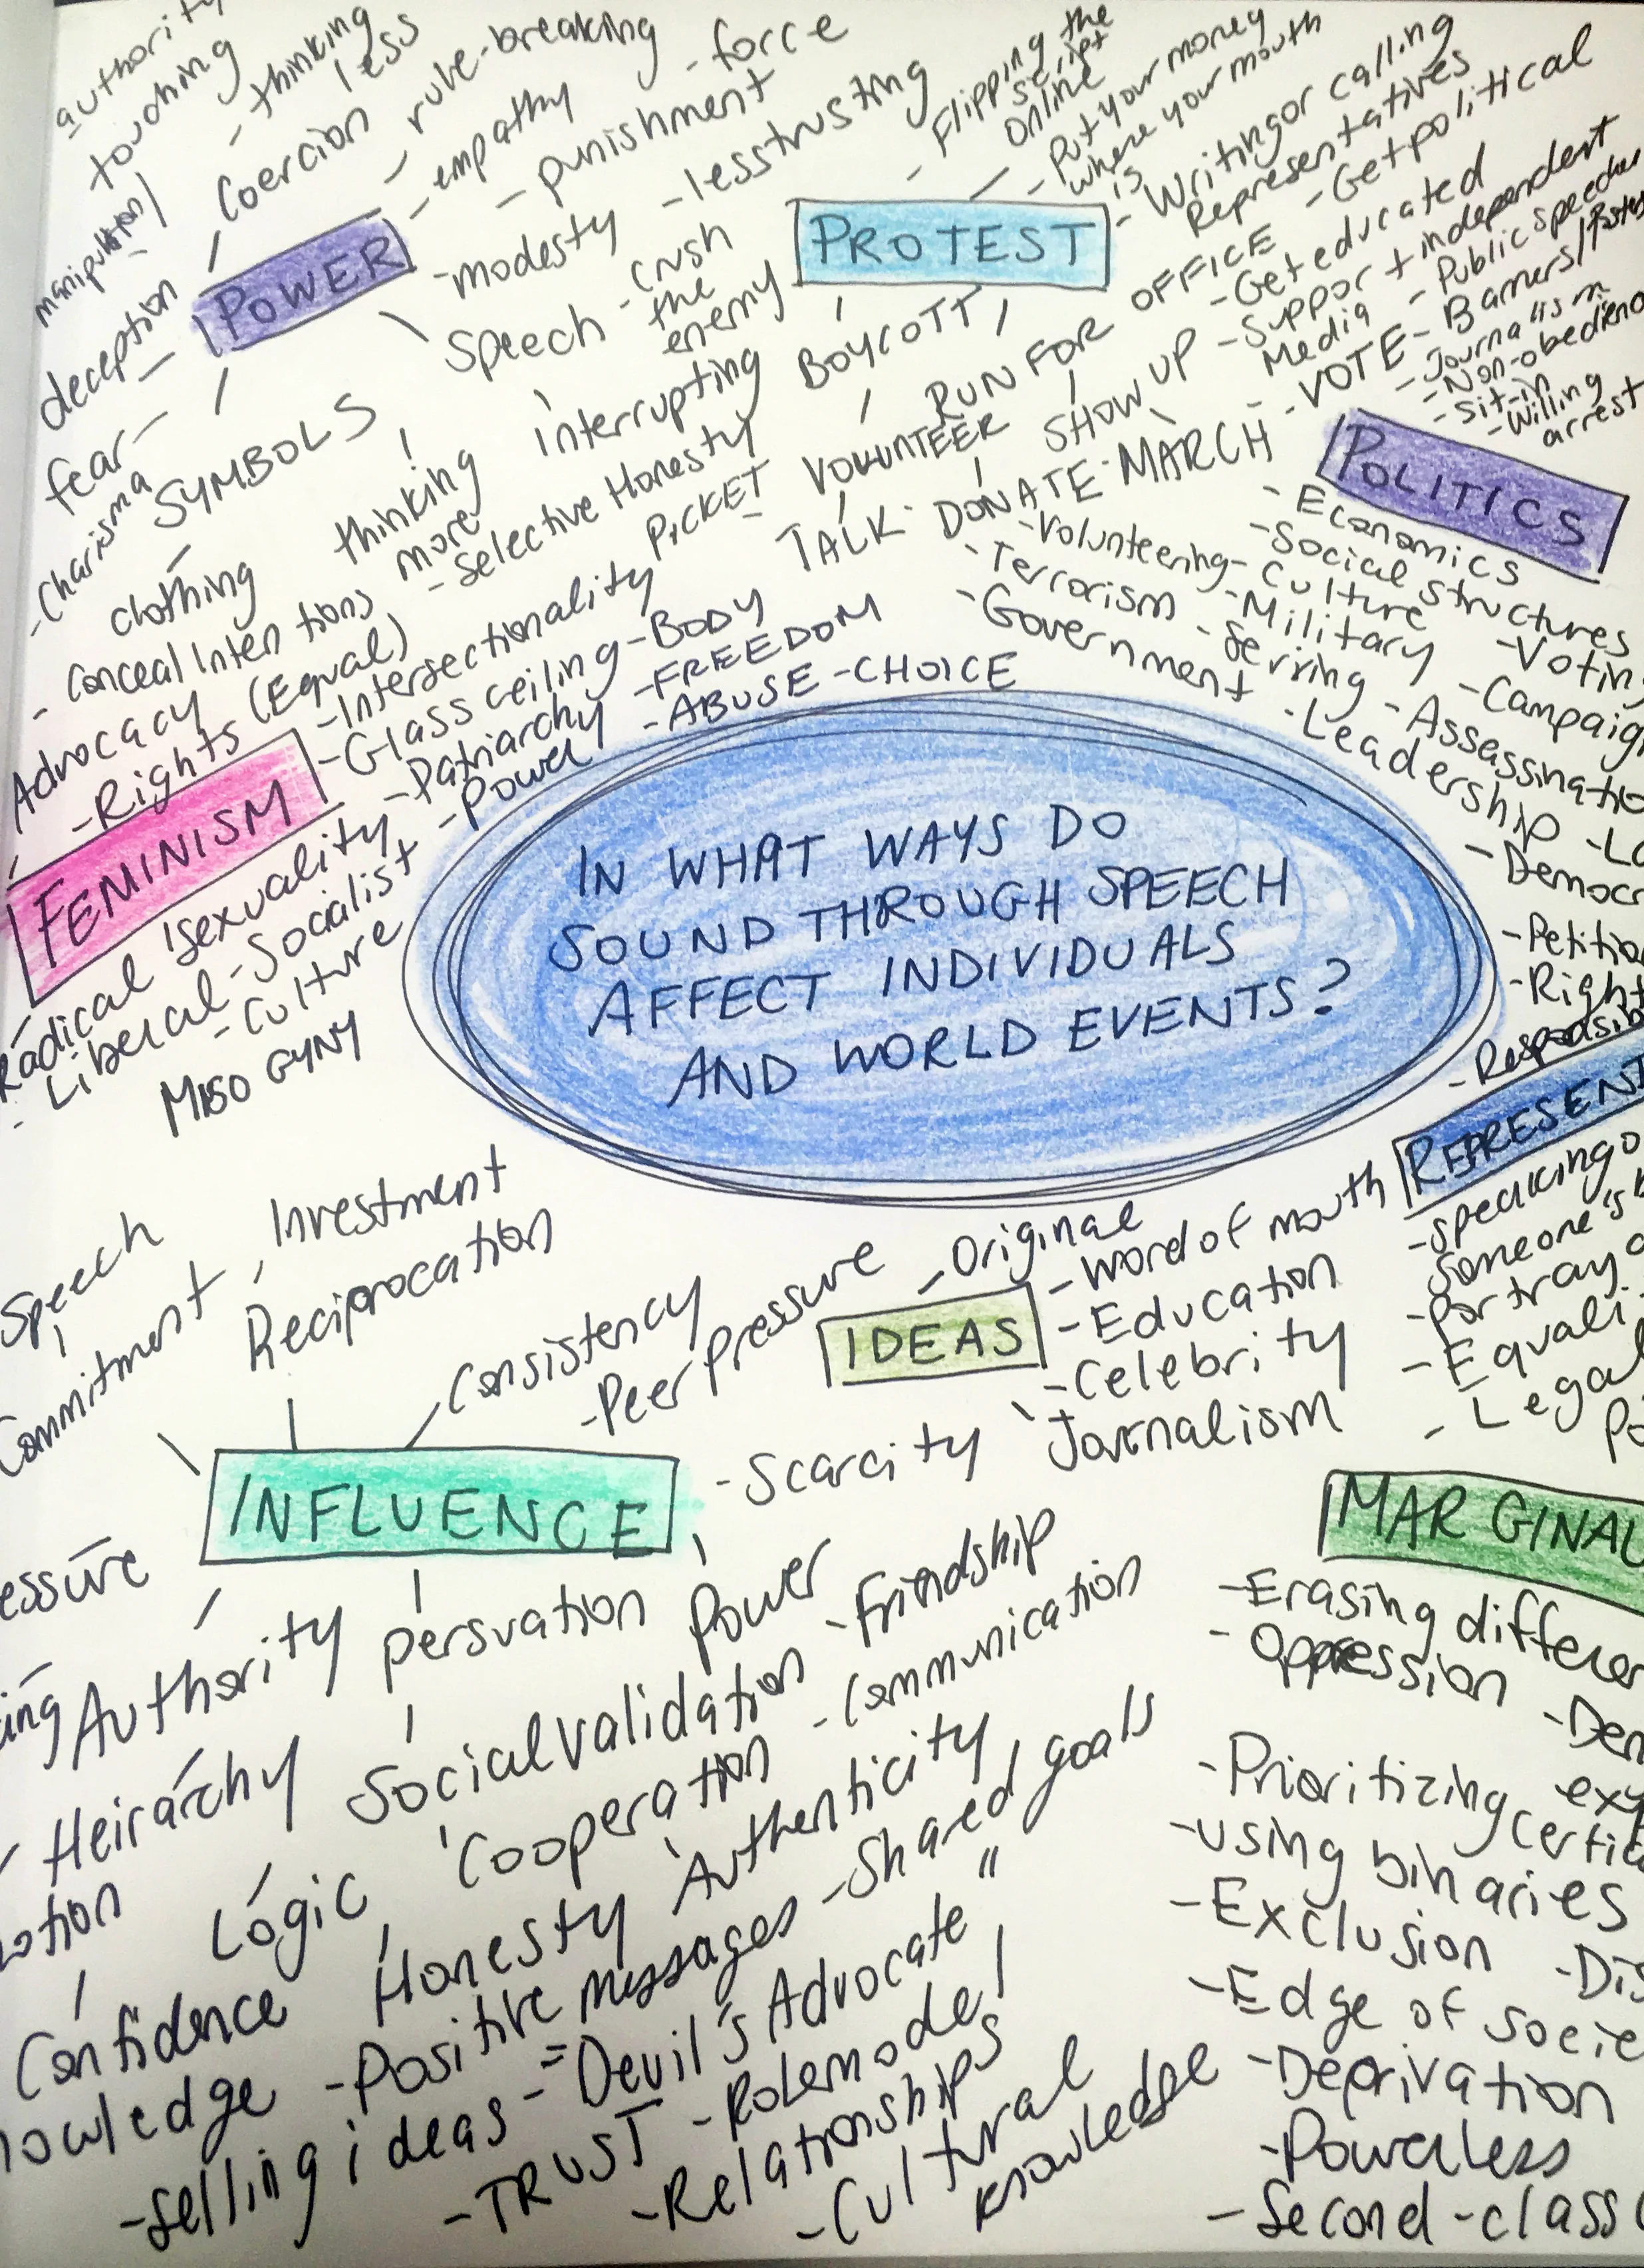 authority
touching
- thinking
less
Coercion
- rule-breaking
- force
- empathy
- punishment
manipulation
deception
POWER
-modesty
-lesstrusting
Speech
-crush
the
enemy
fear
-Charisma
SYMBOLS
clothing
thinking
more
interrupting
- Selective Honesty
- Conceal Intentions
- Flipping the
script
online
- Put your money
where your mouth
is
- Writing or calling
Representatives
PROTEST
-Get political
BOYCOTT
RUN FOR OFFICE
-Get educated
-Support independent
Media
-Public speeches
VOLUNTEER
SHOW UP
-VOTE
-Banners/
-Journalism
-Non-obedience
-Sit-in
-Willing
arrest
PICKET
TALK
DONATE
MARCH
POLITICS
-Economics
-Social structures
-Volunteering
-Culture
-Voting
-Terrorism
-Military
-Government
-Serving
-Assassinatio
-Leadership
-Democr
-Petition
-Right
Advocacy
-Rights (Equal)
-Intersectionality
-Glass ceiling
-BODY
-Patriarchy
-FREEDOM
-Power
-ABUSE
-CHOICE
FEMINISM
Radical
sexuality
-Liberal
-Socialist
-Culture
MISOGYNY
IN WHAT WAYS DO
SOUND THROUGH SPEECH
AFFECT INDIVIDUALS
AND WORLD EVENTS?
REPRESENT
-speaking o
Someone's b
-Portray
-Equali
-Legal
Speech
Commitment
Investment
Reciprocation
Consistency
-Peer Pressure
-Original
-Word of mouth
IDEAS
-Education
-Celebrity
Journalism
INFLUENCE
-Scarcity
essure
Authority
persuation
Power
-Friendship
Heirarchy
Social validation
-Communication
Logic
Cooperation
Authenticity
-Shared goals
Confidence
Honesty
nowledge
-Positive messages
-selling ideas
-"Devil's Advocate"
-TRUST
-Rolemodel
-Relationships
-Cultural
knowledge
MARGINAL
-Erasing differen
-Oppression
-Den
-Prioritizing certi
-using binaries
-Exclusion
-Dis
-Edge of socie
-Deprivation
-Powerless
-Second-class